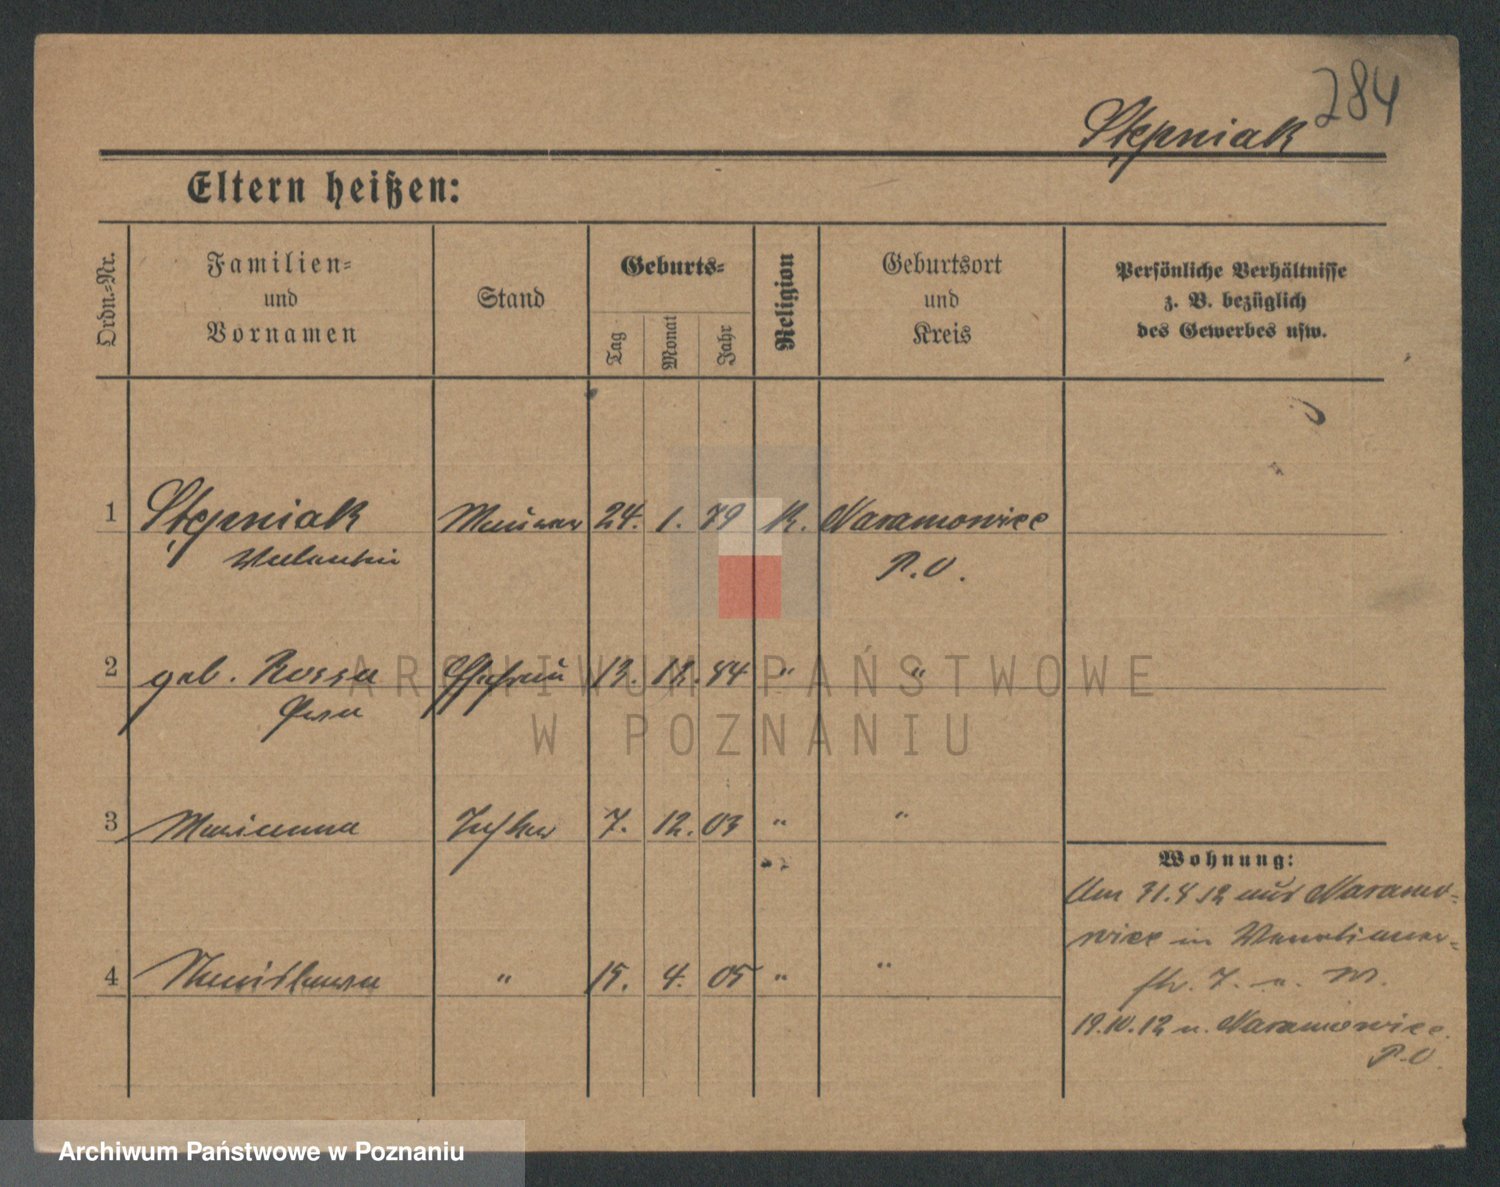 284
Stępniak
Eltern heißen:
Ordn.=Nr.
Familien=
und
Vornamen
Stand
Geburts=
Tag
Monat
Jahr
Religion
Geburtsort
und
Kreis
Persönliche Verhältnisse
z. B. bezüglich
des Gewerbes usw.
1 Stępniak Maurer 24. 1. 79 K. Naramowice
Valentin P. O.
2 geb. Rossa Ehefrau 13. 12. 84 " "
3 Marianna Tochter 7. 12. 03 " "
4 Stanislawa " 15. 4. 05 " "
Wohnung:
Am 31.8.12 aus Naramo-
wice in
str. 7. u. W.
19.10.12 n. Naramowice
P. O.
ARCHIWUM PAŃSTWOWE
W POZNANIU
Archiwum Państwowe w Poznaniu